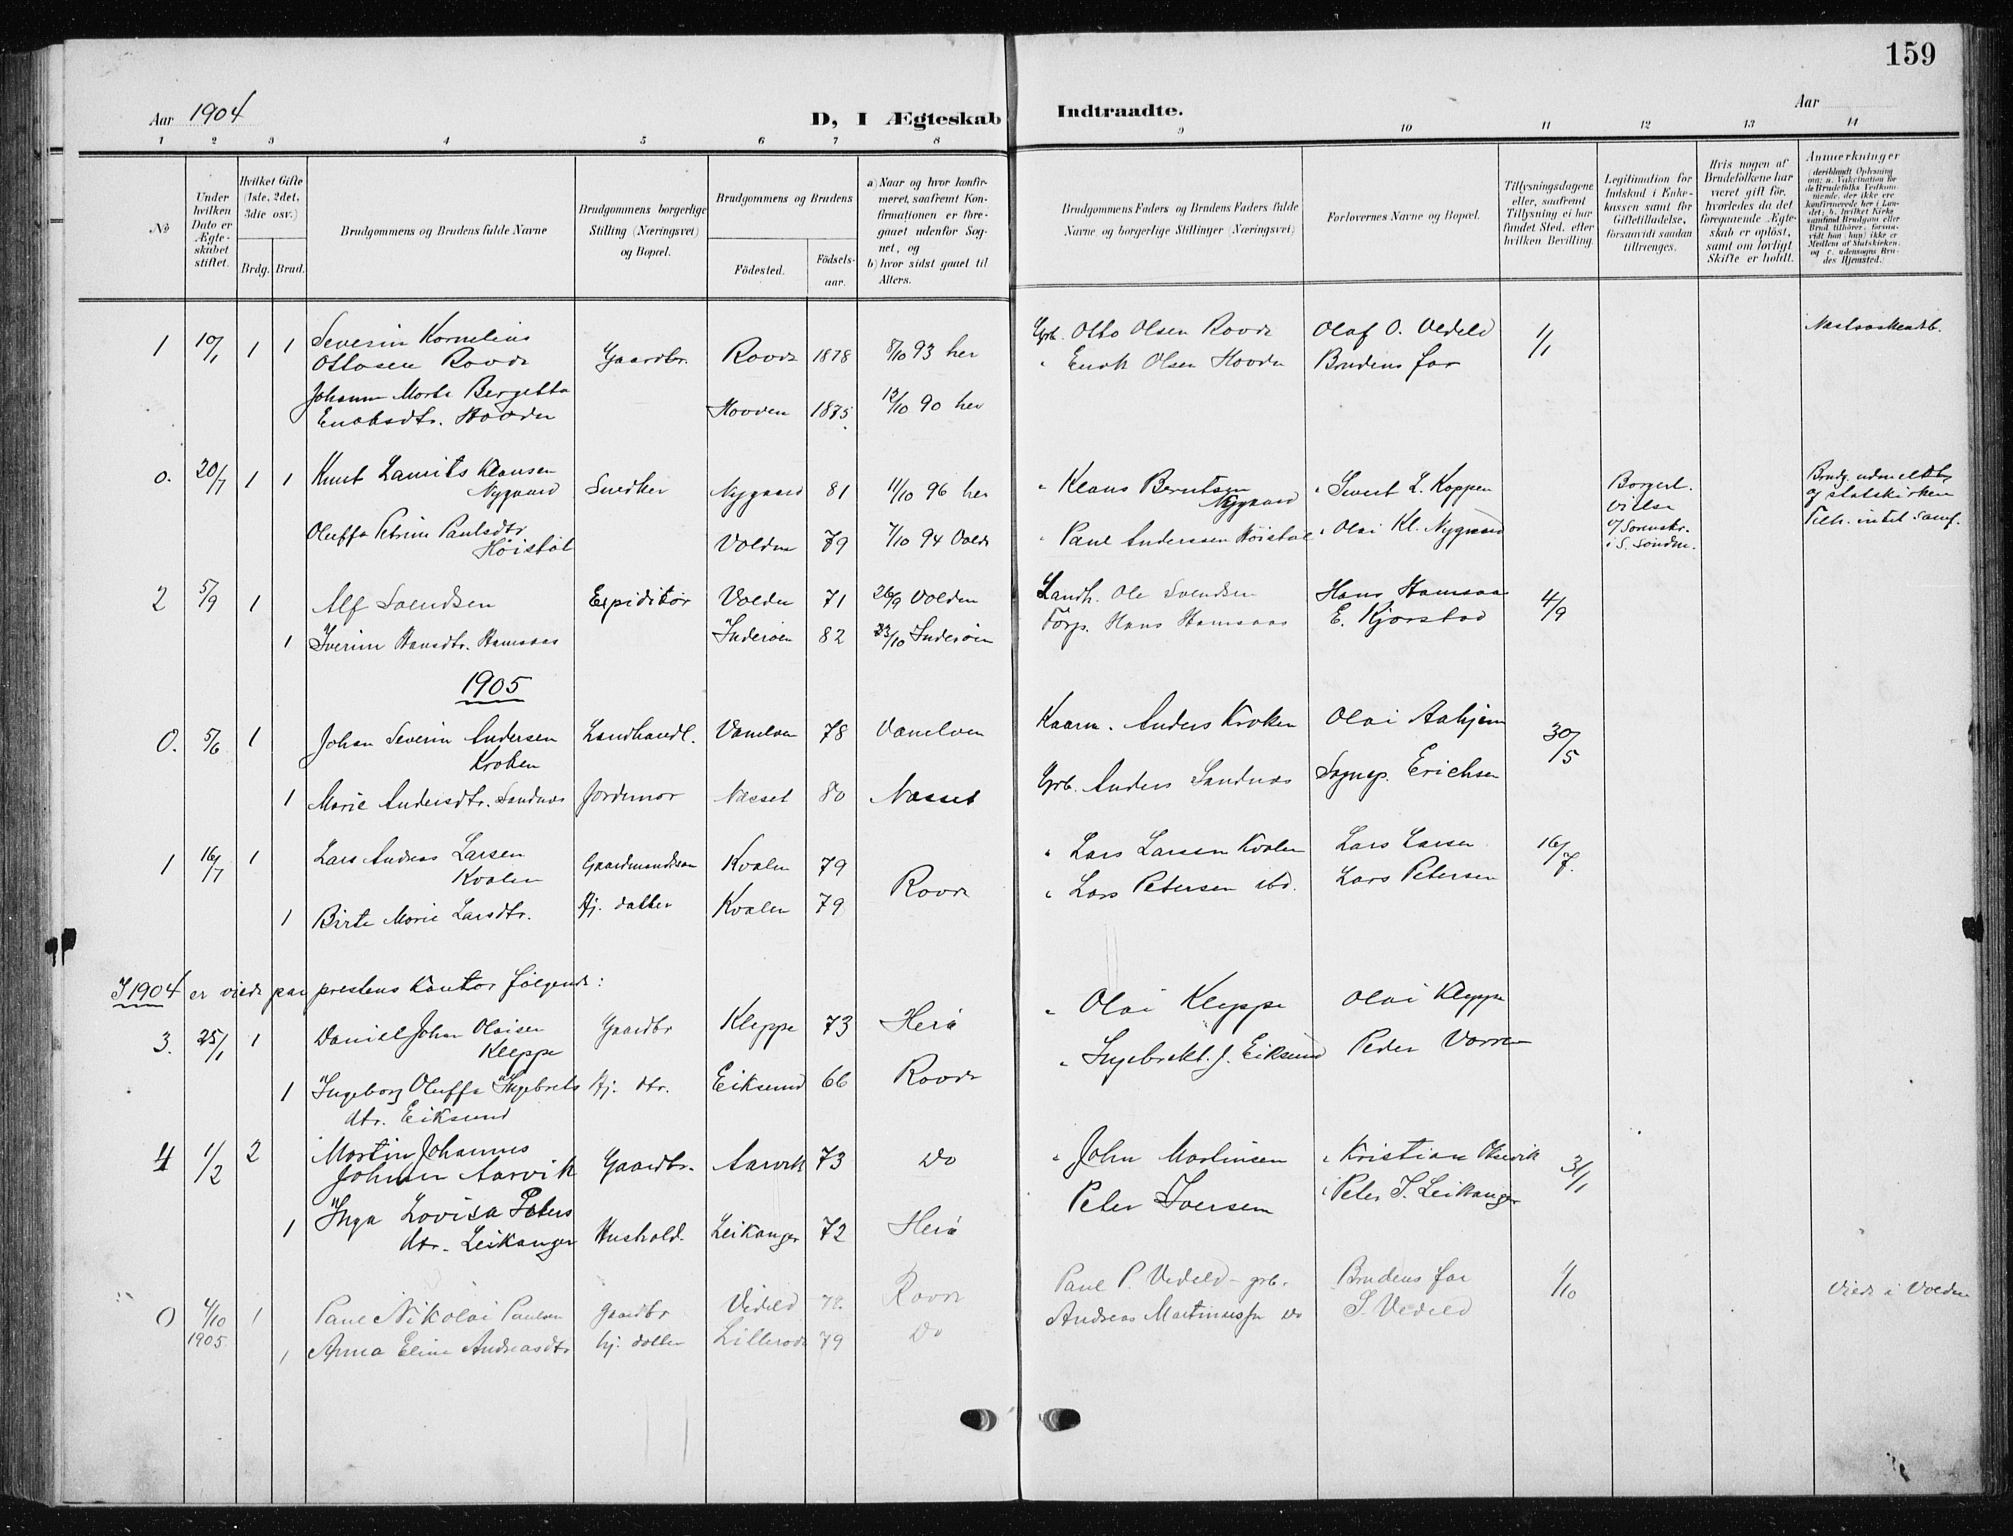 159
Aar 1904
D, I Ægteskab Indtraadte.
Aar
1 2 3 4 5 6 7 8 9 10 11 12 13 14
No
Under hvilken Dato er Ægteskabet stiftet.
Hvilket Gifte (1ste, 2det, 3die osv.)
Brdg. Brud.
Brudgommens og Brudens fulde Navne
Brudgommens borgerlige Stilling (Næringsvei) og Bopæl.
Brudgommens og Brudens
Födested.
Födsels-aar.
a) Naar og hvor konfirmeret, saafremt Konfirmationen er foregaaet udenfor Sognet, og
b) hvor sidst gaaet til Alters.
Brudgommens Faders og Brudens Faders fulde Navne og borgerlige Stillinger (Næringsvei)
Forlovernes Navne og Bopæl.
Tillysningsdagene eller, saafremt Tillysning ei har fundet Sted, efter hvilken Bevilling.
Legitimation for Indskud i Enkekassen samt for Giftetilladelse, forsaavidt saadan tiltrænges.
Hvis nogen af Brudefolkene har været gift för, hvorledes da det foregaaende Ægteskab er oplöst, samt om lovligt Skifte er holdt.
Anmerkninger
1 10/1 1 1 Severin Kornelius Ottosen Rovde Gaardbr. Rovde 1878 8/10 93 her Grb. Otto Olsen Rovde Olaf O. Vedeld 1/1
Johanne Marte Bergette Enoksdtr. Hovden Hovden 1875. 12/10 90 her " Enok Olsen Hovden Brudens far
0. 20/7 1 1 Knut Laurits Klausen Nygaard Snedker Nygaard 81 11/10 96 her " Klaus Berntsen Nygaard " Sivert L. Koppen Borgerl. vielse Brudg. udmeldt af statskirken
Oluffa Petrine Paulsdtr. Höistöl Volden 79 7/10 94 Volde " Paul Anderssen Höistöl " Olai Kl. Nygaard i S. Söndm. Tilh. intet samf.
2 5/9 1 Alf Svendsen Expiditör Volden 71 26/9 Volden Landh. Ole Svendsen Hans Hamsaas 4/9
1 Iverine Hansdtr. Hamsaas Inderöen 82 23/10 Inderöen Forp. Hans Hamsaas E. Kjörstad
1905
0. 5/6 1 Johan Severin Andersen Kroken Landhandl. Vanelven 78 Vanelven Kaarm. Anders Kroken Olai Aahjem 30/5
1 Marie Andersdtr. Sandnes Jordemor Næsset 80 Næsset Grb. Anders Sandnæs Sognep. Erichsen
1 16/7 1 Lars Andreas Larsen Kvalen Gaardmandssøn Kvalen 79 Rovde " Lars Larsen Kvalen Lars Larsen 16/7.
1 Birte Marie Larsdtr. Hj. datter Kvalen 79 " Lars Petersen ibd. Lars Petersen
I 1904 er viede paa prestens kontor følgende:
3. 25/1 1 Daniel Johan Olaisen Kleppe Gaardbr Kleppe 73 Herö " Olai Kleppe Olai Kleppe
1 Ingeborg Oluffa Ingebrets dtr. Eiksund Hj. dtr. Eiksund 66 Rovde " Ingebrekt. J. Eiksund Peder Vorren
4 1/2 2 Martin Johannes Johnsen Aarvik Gaardbr. Aarvik 73 Do " John Martinsen " Kristian Oksevik 31/1
1 Inga Lovisa Peters dtr. Leikanger Hushold. Leikanger 72 Herö Peter Iversen " Peter I. Leikanger
0 4/10 1905. 1 Paul Nikolai Paulsen gaardbr Vedeld 79. Rovde Paul P. Vedeld - grb. Brudens far 1/10 Viede i Volden
1 Anna Eline Andreasdtr hj. datter Lillerovde 79 Do Andreas Martinussen Do S. Vedeld